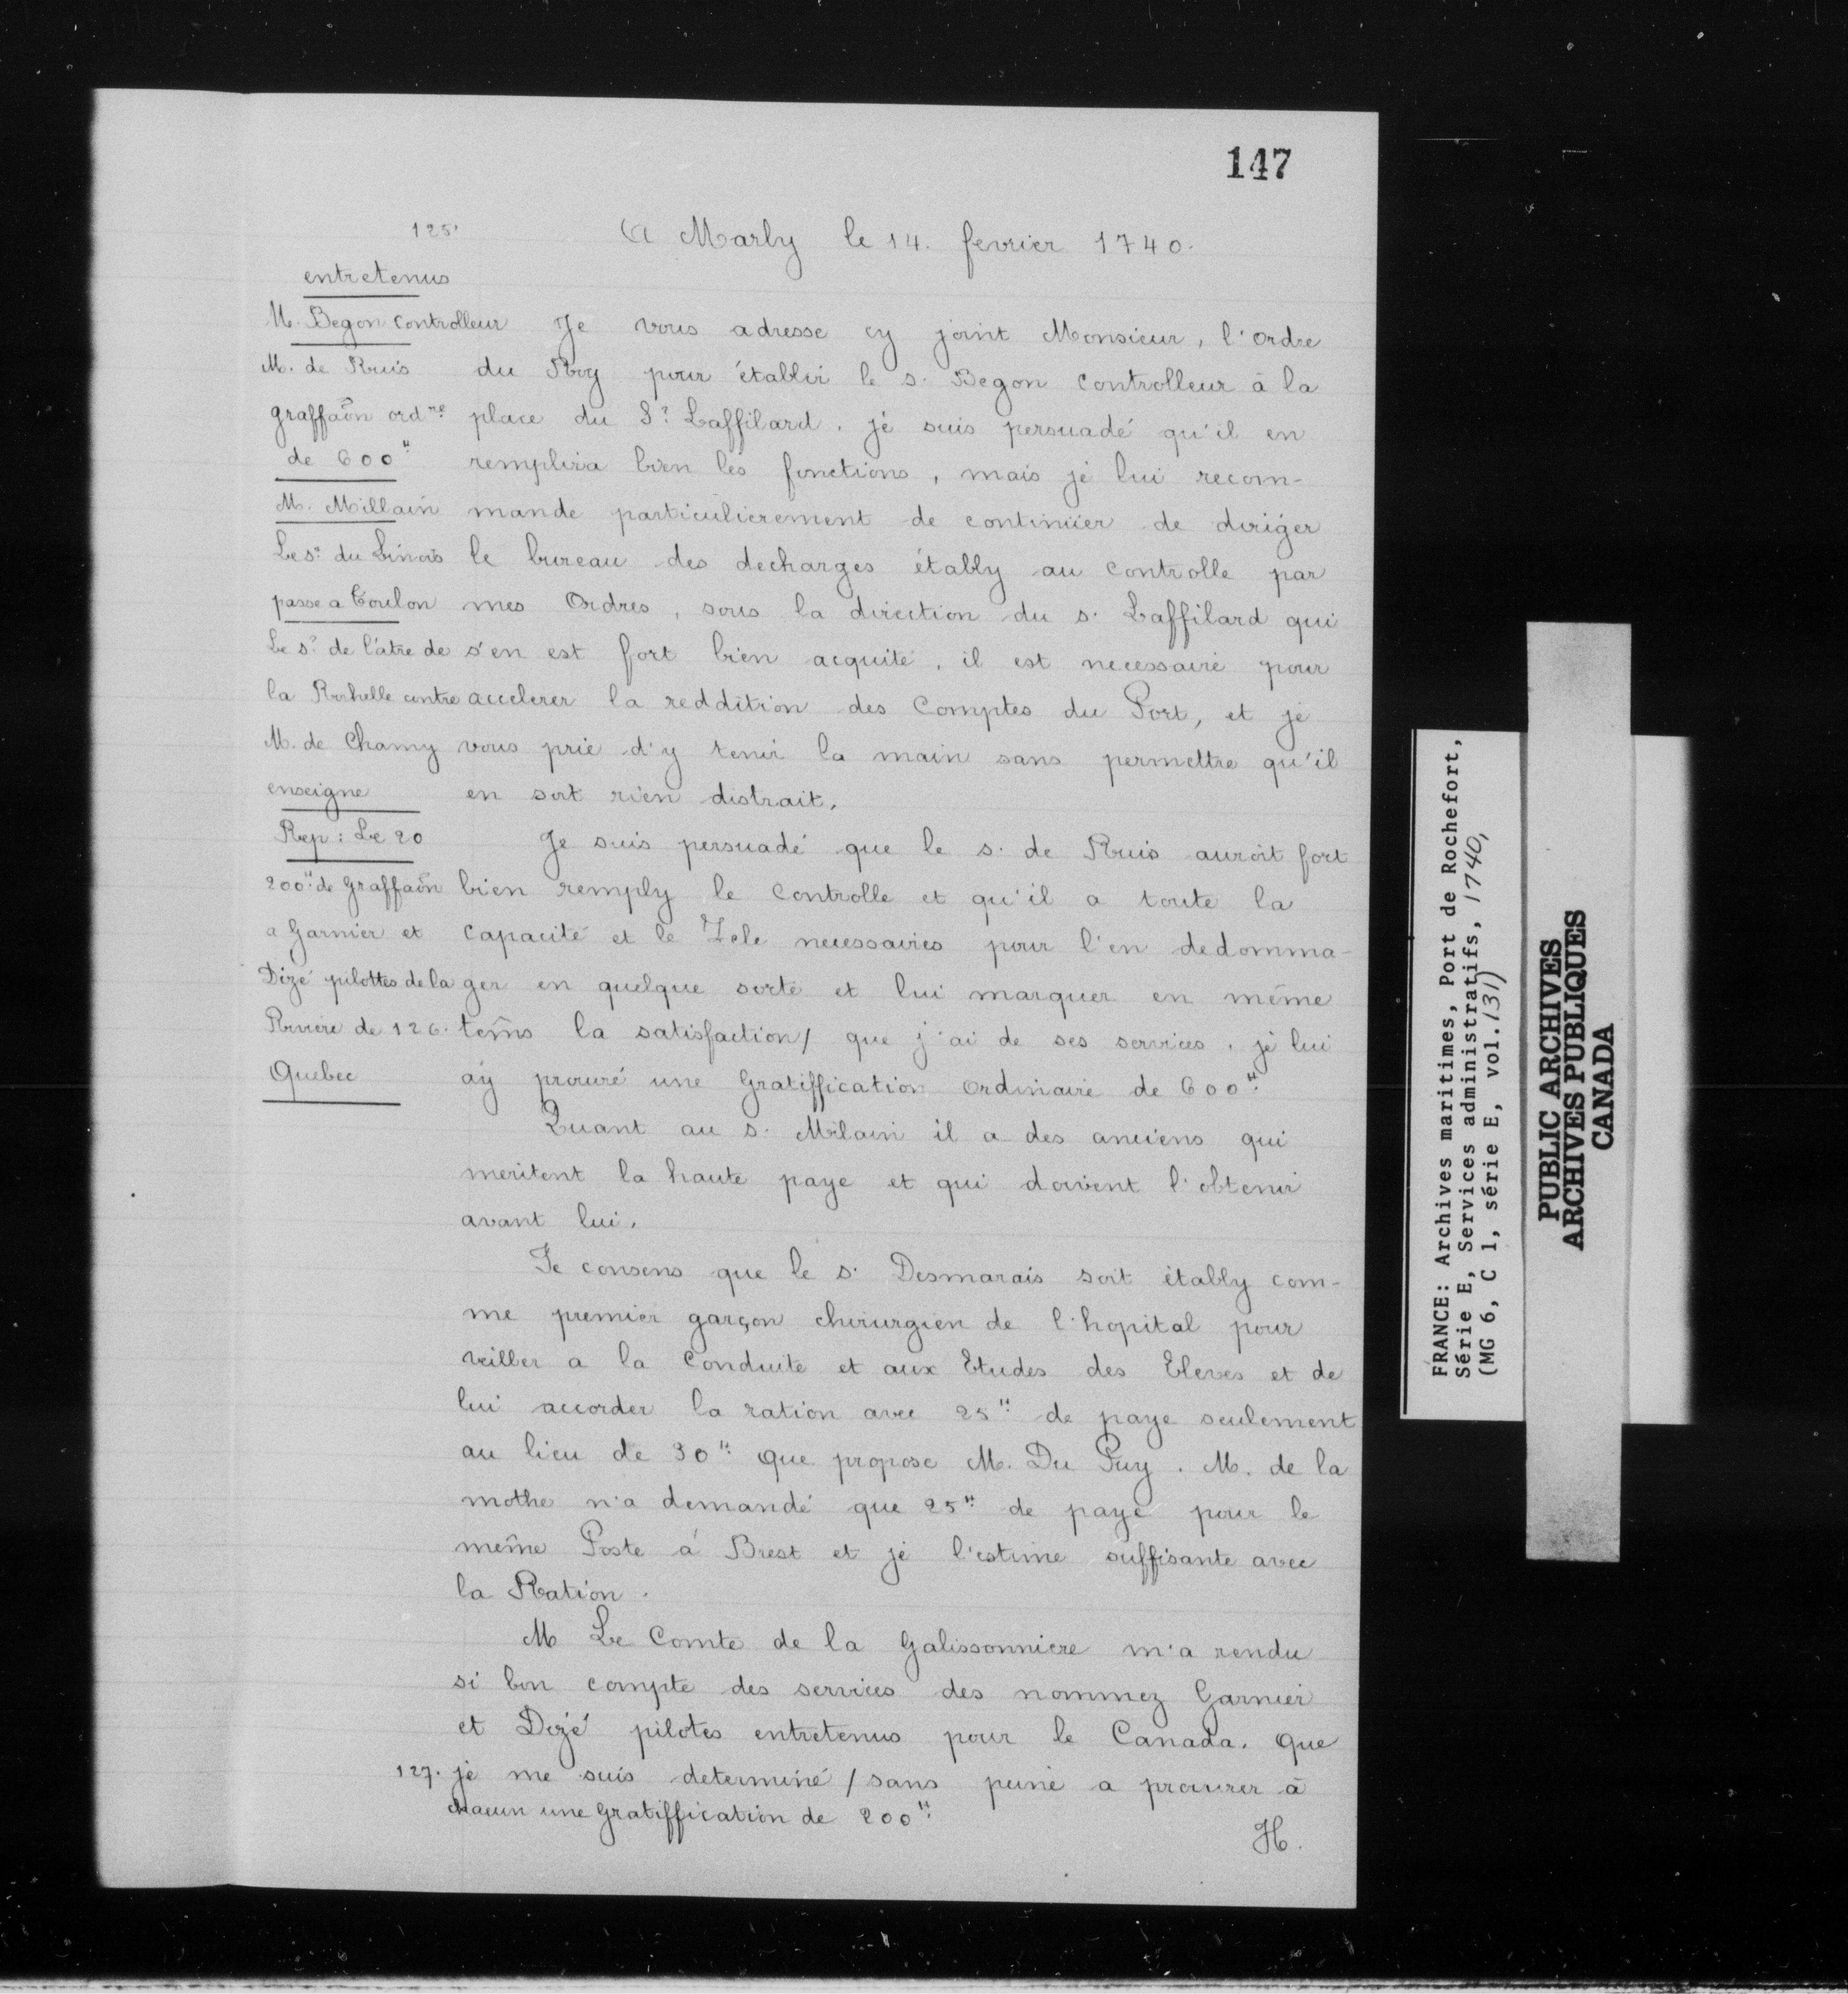 147
125.
A Marly le 14. fevrier 1740.
entretenus
M. Begon controlleur
M. de Ruis
graffaôn ord.re
de 600#
M. Millain
Le s.r du Linois
passe a Toulon
Le s.r de l'âtre de
la Rochelle contre
M. de Chamy
enseigne
Rep: Le 20
200# de graffaôn
a Garnier et
Dizé pilottes de la
Riviere de
Quebec
Je vous adresse cy joint Monsieur, l'ordre
du Roy pour établir le s. Begon controlleur à la
place du S.r Laffilard. je suis persuadé qu'il en
remplira bien les fonctions, mais je lui recom-
mande particulierement de continüer de diriger
le bureau des decharges étably au controlle par
mes Ordres, sous la direction du s. Laffilard qui
s'en est fort bien acquité, il est necessaire pour
accelerer la reddition des Comptes du Port, et je
vous prie d'y tenir la main sans permettre qu'il
en soit rien distrait.
Je suis persuadé que le s. de Ruis auroit fort
bien remply le Controlle et qu'il a toute la
capacité et le Zele necessaires pour l'en dedomma-
ger en quelque sorte et lui marquer en même
126. tem̃s la satisfaction/ que j'ai de ses services. je lui
ay procuré une Gratiffication Ordinaire de 600#
Quant au s. Milain il a des anciens qui
meritent la haute paye et qui doivent l'obtenir
avant lui.
Je consens que le s. Desmarais soit étably com-
me premier garçon chirurgien de l'hopital pour
veiller a la Conduite et aux Etudes des Eleves et de
lui accorder la ration avec 25# de paye seulement
au lieu de 30# que propose M. Du Puy. M. de la
mothe n'a demandé que 25# de paye pour le
même Poste à Brest et je l'estime suffisante avec
la Ration.
M Le Comte de la Galissonniere m'a rendu
si bon compte des services des nommez Garnier
et Dizé pilotes entretenus pour le Canada. que
127. je me suis determiné / sans peine a procurer à
chacun une Gratiffication de 200#
H.
FRANCE: Archives maritimes, Port de Rochefort,
Série E, Services administratifs, 1740,
(MG 6, C 1, série E, vol. 131)
PUBLIC ARCHIVES
ARCHIVES PUBLIQUES
CANADA